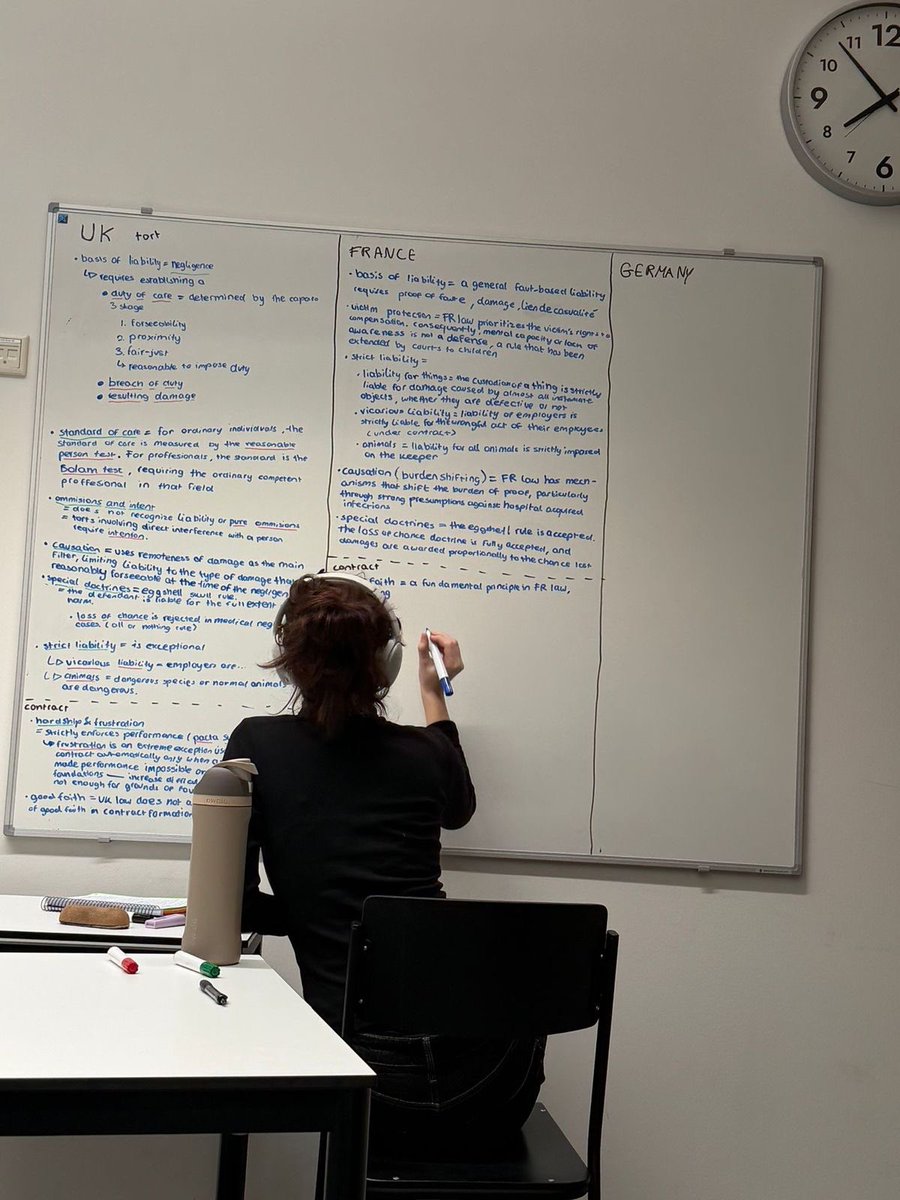 UK tort
• basis of liability = negligence
↳ requires establishing a
• duty of care = determined by the caparo
3 stage
1. forseebility
2. proximity
3. fair-just
↳ reasonable to impose duty
• breach of duty
• resulting damage
• standard of care = for ordinary individuals, the
standard of care is measured by the reasonable
person test. For proffesionals, the standard is the
Bolam test, requiring the ordinary competent
proffesional in that field
• ommisions and intent
= does not recognize liability or pure ommisions
= torts involving direct interference with a person
require intenton.
• causation = uses remoteness of damage as the main
filter, limiting liability to the type of damage that
reasonably forseeable at the time of the negligen
• special doctrines = eggshell skull rule.
= the defendant is liable for the full extent
harm.
• loss of chance is rejected in medical neg
cases. (all or nothing rule)
• strict liability = is exceptional
↳ vicarious liability - employers are...
↳ animals = dangerous species or normal animals
are dangerous.
contract
• hardship & frustration
= strictly enforces performance (pacta s
↳ frustration is an extreme exception us
contract automatically only when a
made performance impossible or
foundations — increase difficul
not enough for grounds of
• good faith = UK law does not a
of good faith in contract formation
FRANCE
• basis of liability = a general fault-based liability
requires proof of faute, damage, lien de casualité
• victim protecson = FR law prioritizes the victim's right to
compensation. consequently, mental capacity or lack of
awareness is not a defense, a rule that has been
extended by courts to children
• strict liability =
• liability for things = the custodian of a thing is strictly
liable for damage caused by almost all inanimate
objects, whether they are defective or not
• vicarious liability = liability of employers is
strictly liable for the wrongful act of their employees
(under contract)
• animals = liability for all animals is strictly imposed
on the keeper
• causation (burden shifting) = FR law has mech-
anisms that shift the burden of proof, particularly
through strong presumptions against hospital acquired
infections
• special doctrines = the eggshell rule is accepted.
the loss of chance doctrine is fully accepted, and
damages are awarded proportionally to the chance lost
contract
faith = a fundamental principle in FR law,
GERMANY
12
11
10
9
8
7
6
owala